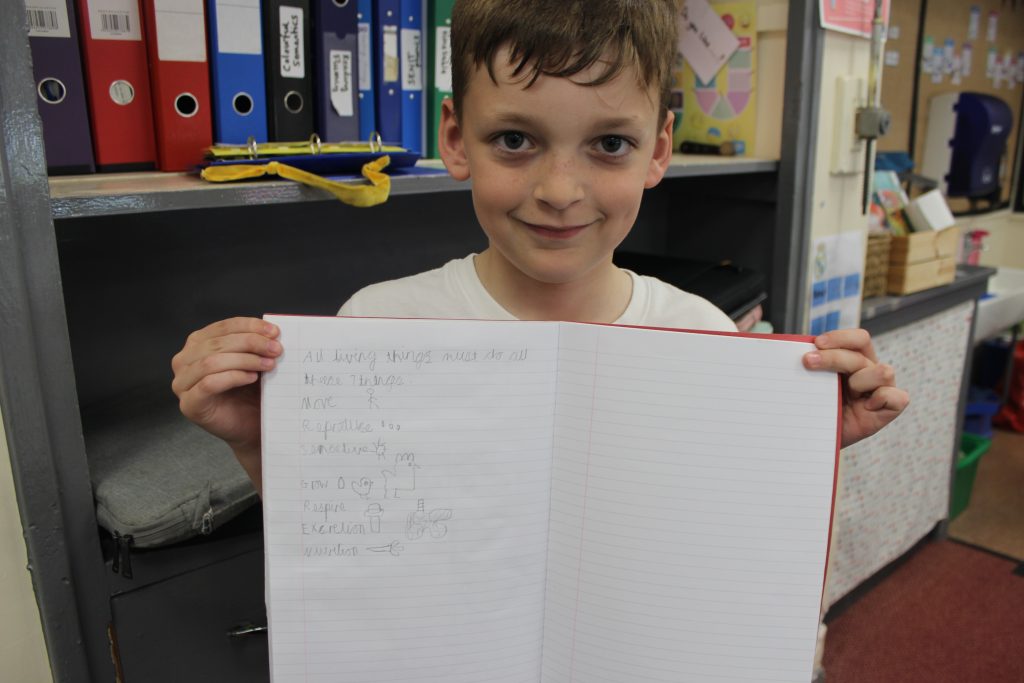 Colourful
Semantics
SENIT
All living things must do all
these 7 things.
Move
Reproduse
Sensetive
Grow
Respire
Excretion
Nutrition